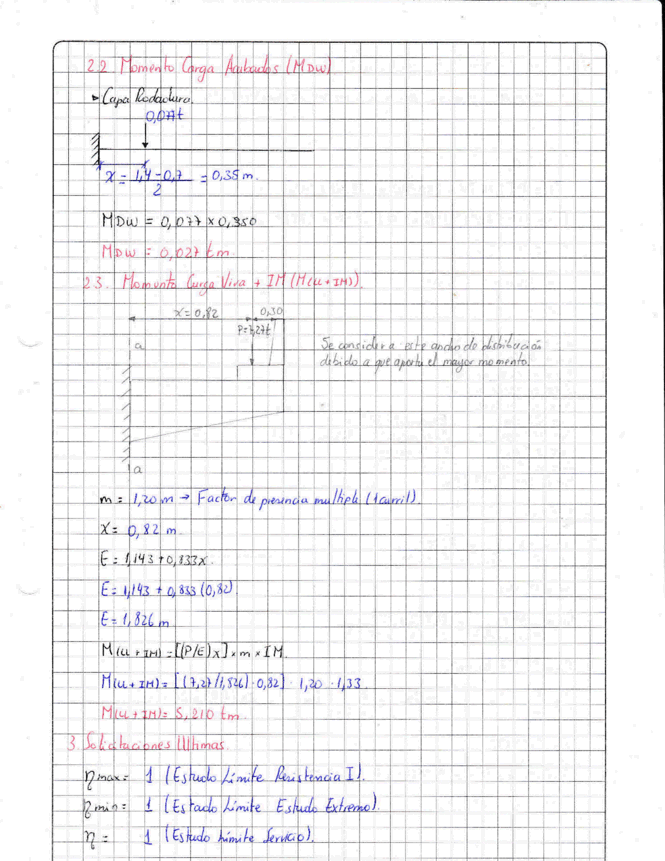 2.2 Momento Carga Acabados (MDW)
▸ Capa Rodadura.
0,077t
x = 1,4-0,7 / 2 = 0,35 m.
MDW = 0,077 x 0,350
MDW = 0,027 tm
2.3. Momento Carga Viva + IM (M(LL+IM)).
x = 0,82 0,30
P=7,27t
a
Se considera este ancho de distribución
debido a que aporta el mayor momento.
a
m = 1,20 m → Factor de presencia multiple (1 carril).
X = 0,82 m
E = 1,143 + 0,833x.
E = 1,143 + 0,833 (0,82).
E = 1,826 m
M(LL+IM) = [(P/E)x] x m x IM.
M(LL+IM) = [(7,27/1,826)·0,82] · 1,20 · 1,33.
M(LL+IM) = 5,210 tm
3. Solicitaciones Ultimas.
ηmax = 1 (Estado Límite Resistencia I).
ηmin = 1 (Estado Límite Estado Extremo).
η = 1 (Estado Límite Servicio).